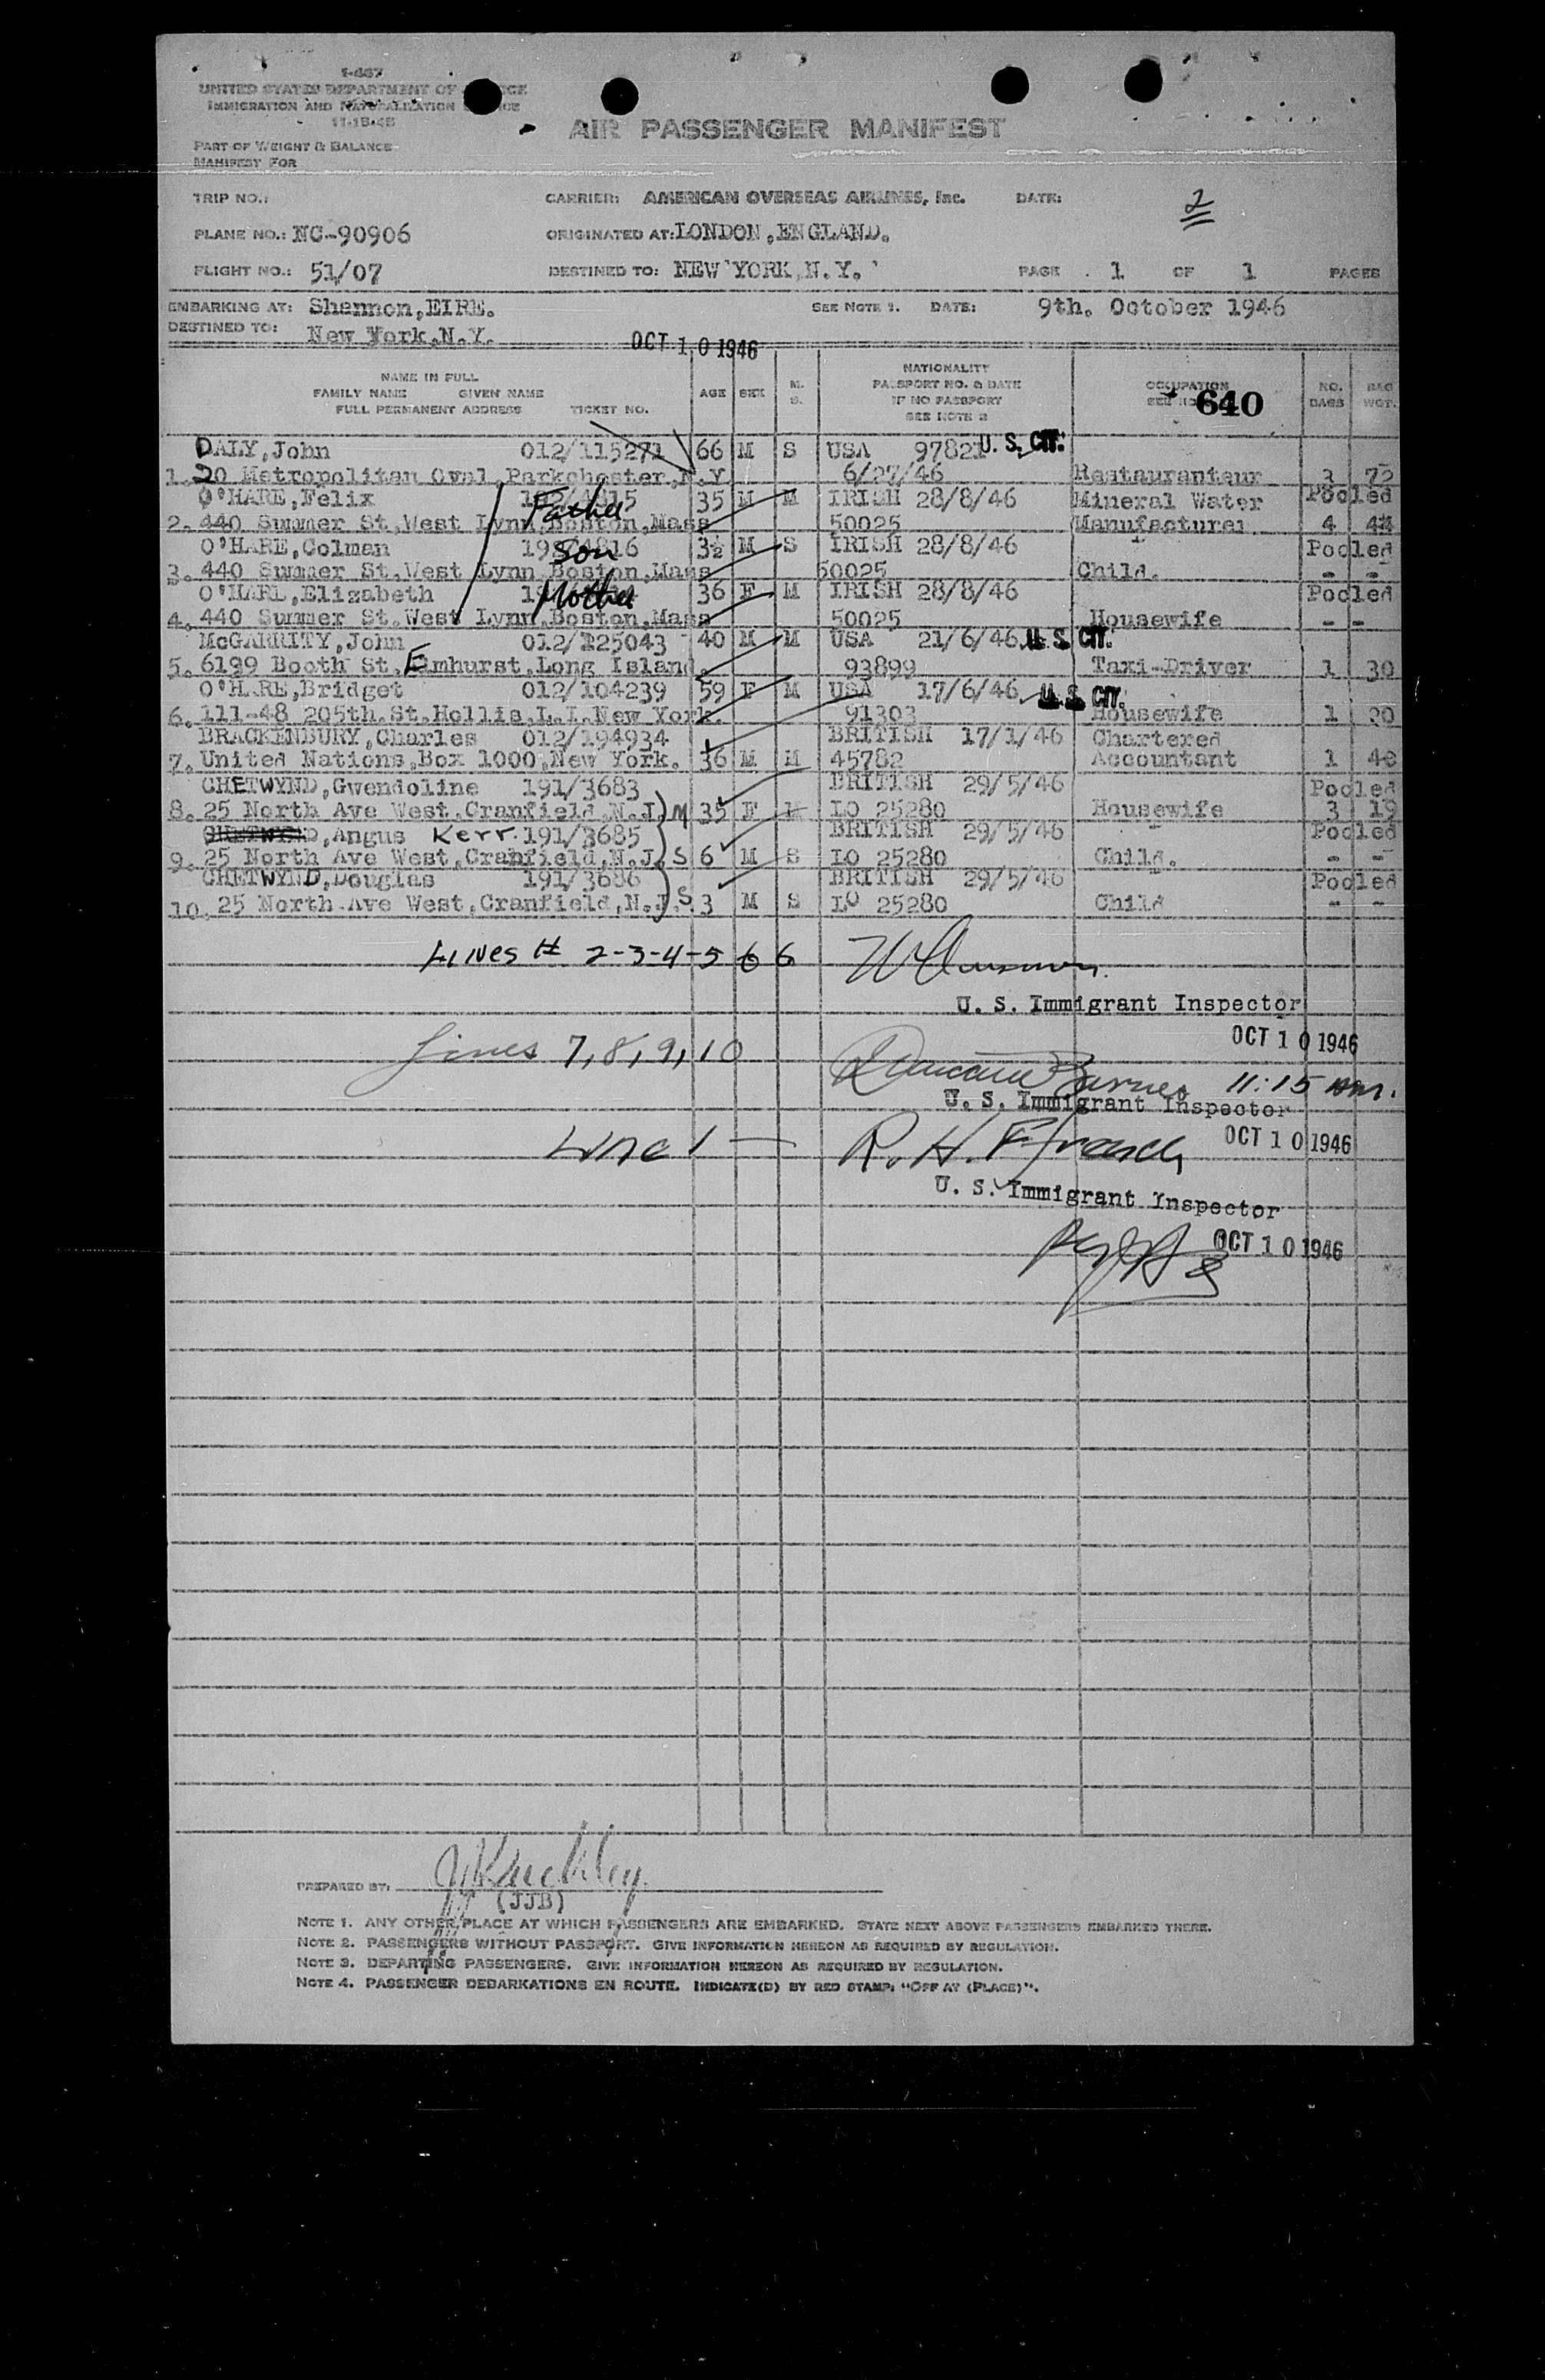 I-467
UNITED STATES DEPARTMENT OF
IMMIGRATION AND NATURALIZATION
11-15-45
AIR PASSENGER MANIFEST
PART OF WEIGHT & BALANCE
MANIFEST FOR
TRIP NO.: CARRIER: AMERICAN OVERSEAS AIRLINES, Inc. DATE: 2
PLANE NO.: NC-90906 ORIGINATED AT: LONDON, ENGLAND.
FLIGHT NO.: 51/07 DESTINED TO: NEW YORK, N.Y. PAGE 1 OF 1 PAGES
EMBARKING AT: Shannon, EIRE. SEE NOTE 1. DATE: 9th. October 1946
DESTINED TO: New York, N.Y. OCT 10 1946
NAME IN FULL
FAMILY NAME GIVEN NAME
FULL PERMANENT ADDRESS TICKET NO. AGE SEX M. S. NATIONALITY PASSPORT NO. & DATE IF NO PASSPORT SEE NOTE 2 OCCUPATION 640 NO. BAGS BAG WGT.
DALY, John 012/115271 66 M S USA 97821 U. S. CIT.
1. 20 Metropolitan Oval, Parkchester, N.Y 6/27/46 Restauranteur 3 72
O'HARE, Felix Father 35 M M IRISH 28/8/46 Mineral Water Pooled
2. 440 Summer St, West Lynn, Boston, Mass 50025 Manufacturer 4 44
O'HARE, Colman Son 3½ M S IRISH 28/8/46 Pooled
3. 440 Summer St, West Lynn Boston, Mass 50025 Child. - -
O'HARE, Elizabeth Mother 36 F M IRISH 28/8/46 Pooled
4. 440 Summer St, West Lynn, Boston, Mass 50025 Housewife - -
McGARRITY, John 012/125043 40 M M USA 21/6/46 U. S. CIT.
5. 6139 Booth St, Elmhurst, Long Island. 93899 Taxi-Driver 1 30
O'HARE, Bridget 012/104239 59 F M USA 17/6/46 U. S. CIT.
6. 111-48 205th. St. Hollis, L.I. New York. 91303 Housewife 1
BRACKENBURY, Charles 012/194934 BRITISH 17/1/46 Chartered
7. United Nations, Box 1000, New York. 36 M M 45782 Accountant 1 40
CHETWYND, Gwendoline 191/3683 BRITISH 29/5/46 Pooled
8. 25 North Ave West, Cranfield, N.J. M 35 F M LO 25280 Housewife 3 19
CHETWYND, Angus Kerr. 191/3685 BRITISH 29/5/46 Pooled
9. 25 North Ave West, Cranfield, N.J. S 6 M S LO 25280 Child. - -
CHETWYND, Douglas 191/3686 BRITISH 29/5/46 Pooled
10. 25 North Ave West, Cranfield, N.J. S 3 M S LO 25280 Child - -
Lines # 2-3-4-5 & 6
U. S. Immigrant Inspector
OCT 10 1946
Lines 7, 8, 9, 10
Barnes 11:15 am.
U. S. Immigrant Inspector
OCT 10 1946
Line 1 — R. H.
U. S. Immigrant Inspector
OCT 10 1946
PREPARED BY:
(JJB)
NOTE 1. ANY OTHER PLACE AT WHICH PASSENGERS ARE EMBARKED. STATE NEXT ABOVE PASSENGERS EMBARKED THERE.
NOTE 2. PASSENGERS WITHOUT PASSPORT. GIVE INFORMATION HEREON AS REQUIRED BY REGULATION.
NOTE 3. DEPARTING PASSENGERS. GIVE INFORMATION HEREON AS REQUIRED BY REGULATION.
NOTE 4. PASSENGER DEBARKATIONS EN ROUTE. INDICATE(D) BY RED STAMP: "OFF AT (PLACE)".